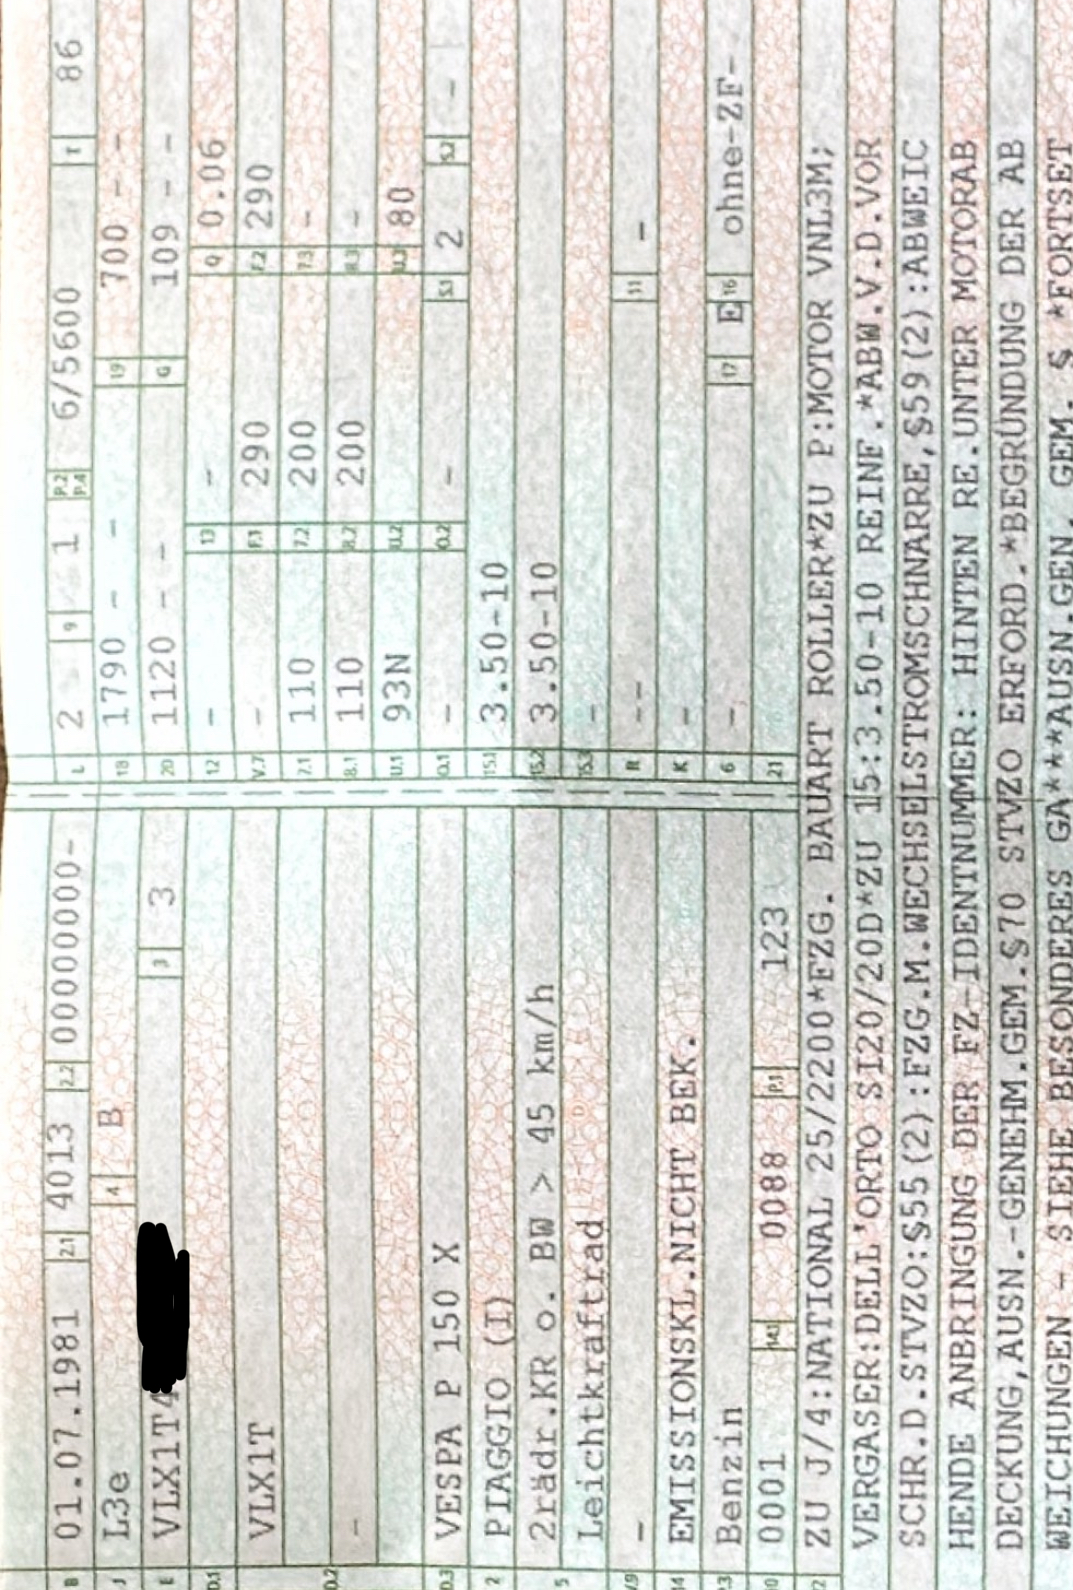 B 01.07.1981 2.1 4013 2.2 00000000- L 2 9 1 P.2 P.4 6/5600 T 86
J L3e 4 B 18 1790 - - 19 700 - -
E VLX1T4 3 3 20 1120 - - G 109 - -
D.1 12 - 13 - Q 0.06
VLX1T V.7 - F.1 290 F.2 290
7.1 110 7.2 200 7.3 -
D.2 - 8.1 110 8.2 200 8.3 -
U.1 93N U.2 U.3 80
D.3 VESPA P 150 X O.1 - O.2 - S.1 2 S.2 -
2 PIAGGIO (I) 15.1 3.50-10
5 2rädr.KR o. BW > 45 km/h 15.2 3.50-10
Leichtkraftrad 15.3 -
V.9 - R -- 11 -
14 EMISSIONSKL.NICHT BEK. K -
P.3 Benzin 6 - 17 E 16 ohne-ZF-
10 0001 14.1 0088 P.1 123 21
22 ZU J/4:NATIONAL 25/2200*FZG. BAUART ROLLER*ZU P:MOTOR VNL3M;
VERGASER:DELL'ORTO SI20/20D*ZU 15:3.50-10 REINF.*ABW.V.D.VOR
SCHR.D.STVZO:§55(2):FZG.M.WECHSELSTROMSCHNARRE,§59(2):ABWEIC
HENDE ANBRINGUNG DER FZ-IDENTNUMMER: HINTEN RE.UNTER MOTORAB
DECKUNG,AUSN.-GENEHM.GEM.§70 STVZO ERFORD.*BEGRÜNDUNG DER AB
WEICHUNGEN - SIEHE BESONDERES GA***AUSN.GEN. GEM. § *FORTSET